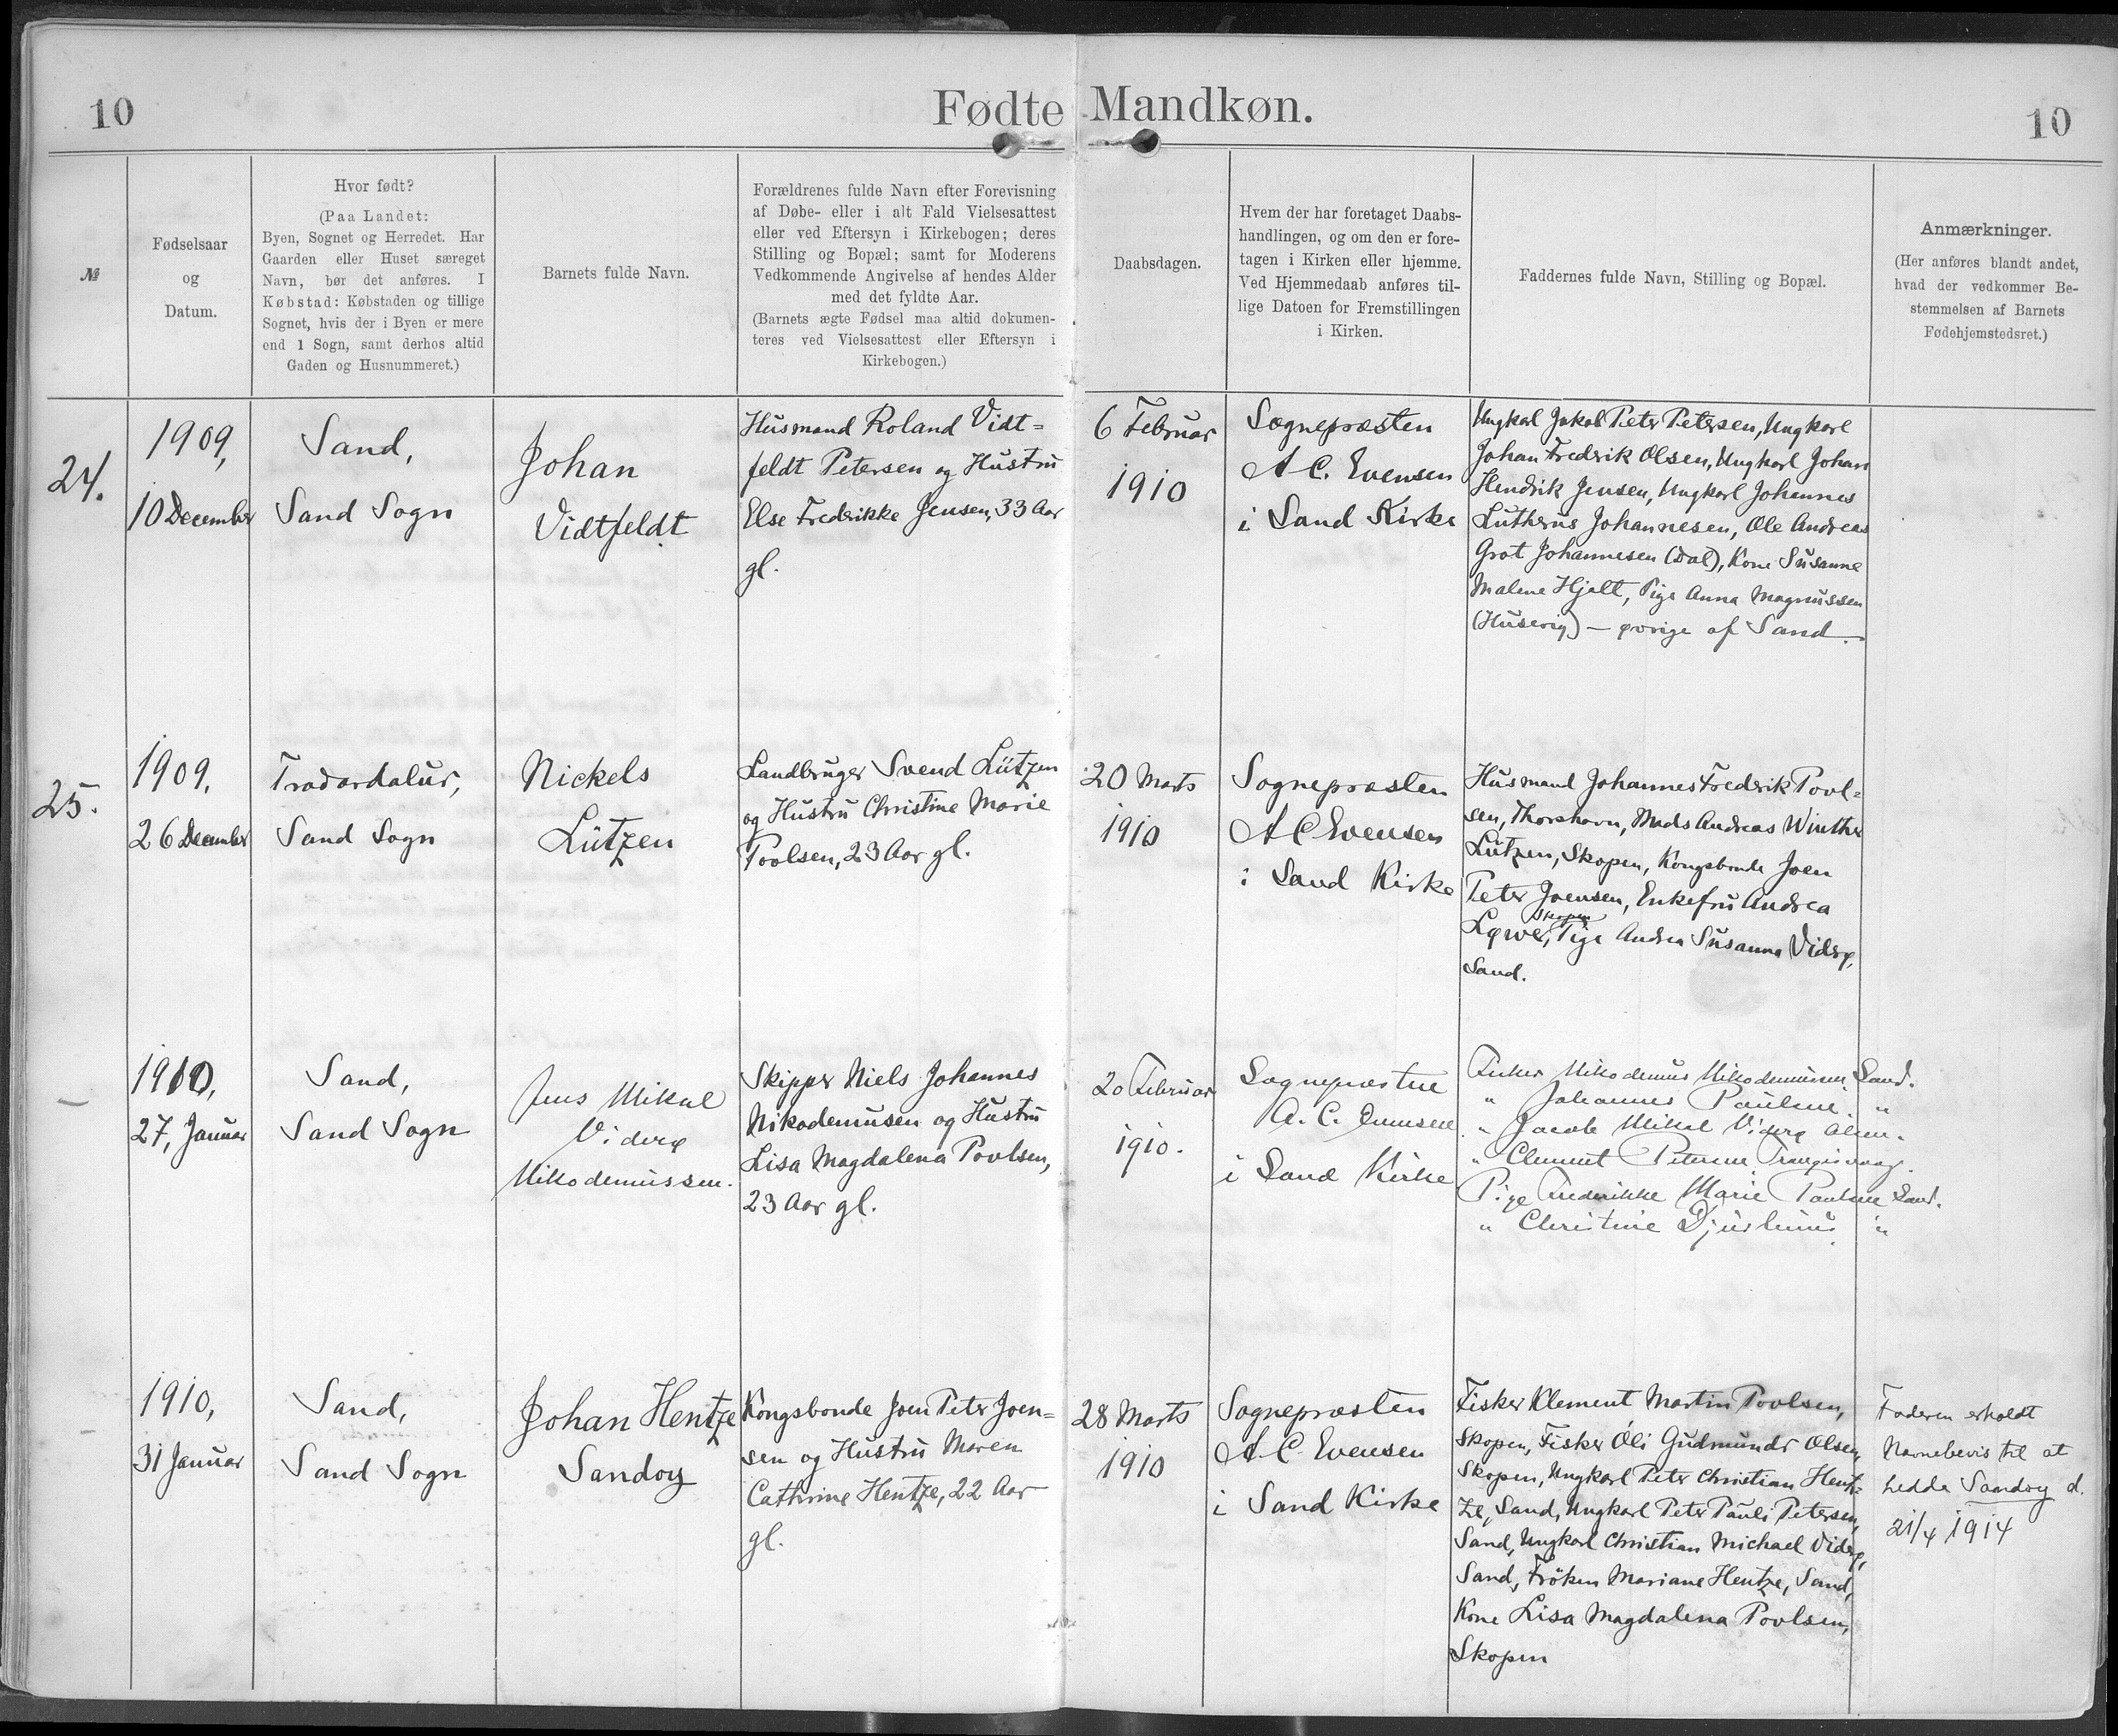 10
Fødte Mandkøn.
10
№
Fødselsaar
og
Datum.
Hvor født?
(Paa Landet:
Byen, Sognet og Herredet. Har
Gaarden eller Huset særeget
Navn, bør det anføres. I
Købstad: Købstaden og tillige
Sognet, hvis der i Byen er mere
end 1 Sogn, samt derhos altid
Gaden og Husnummeret.)
Barnets fulde Navn.
Forældrenes fulde Navn efter Forevisning
af Døbe- eller i alt Fald Vielsesattest
eller ved Eftersyn i Kirkebogen; deres
Stilling og Bopæl; samt for Moderens
Vedkommende Angivelse af hendes Alder
med det fyldte Aar.
(Barnets ægte Fødsel maa altid dokumen-
teres ved Vielsesattest eller Eftersyn i
Kirkebogen.)
Daabsdagen.
Hvem der har foretaget Daabs-
handlingen, og om den er fore-
tagen i Kirken eller hjemme.
Ved Hjemmedaab anføres til-
lige Datoen for Fremstillingen
i Kirken.
Faddernes fulde Navn, Stilling og Bopæl.
Anmærkninger.
(Her anføres blandt andet,
hvad der vedkommer Be-
stemmelsen af Barnets
Fødehjemstedsret.)
24.
1909,
10 December
Sand,
Sand Sogn
Johan
Vidtfeldt
Husmand Roland Vidt=
feldt Petersen og Hustru
Else Fredrikke Jensen, 33 Aar
gl.
6 Februar
1910
Sognepræsten
A C. Evensen
i Sand Kirke
Ungkal Jakob Peter Petersen, Ungkarl
Johan Fredrik Olsen, Ungkarl Johan
Hendrik Jensen, Ungkarl Johannes
Lutherus Johannesen, Ole Andreas
Grot Johannesen (Dal), Kone Susanne
Malene Hjalt, Pige Anna Magnussen
(Husevig) — øvrige af Sand.
25.
1909,
26 December
Tradardalur,
Sand Sogn
Nickels
Lützen
Landbruger Svend Lützen
og Hustru Christine Marie
Poolsen, 23 Aar gl.
20 Marts
1910
Sognepræsten
A C Evensen
i Sand Kirke
Husmand Johannes Fredrik Poul=
sen, Thorshavn, Mads Andreas Winther
Lützen, Skopen, Kongsbonde Joen
Peter Joensen, Enkefru Andrea
Skopen
Løwe, Pige Andrea Susanna Viderø,
Sand.
—
1910,
27, Januar
Sand,
Sand Sogn
Jens Mikal
Viderø
Nikodemussen.
Skipper Niels Johannes
Nikodemusen og Hustru
Lisa Magdalena Poulsen,
23 Aar gl.
20 Februar
1910.
Sognepræsten
A. C. Evensen
i Sand Kirke
Fisker Nikodemus Nikodemussen, Sand.
" Johannes Paulsen. "
" Jacob Mikal Viderø Olsen. "
" Clement Petersen, Trangisvaag.
Pige Frederikke Marie Paulsen Sand.
" Christine "
1910,
31 Januar
Sand,
Sand Sogn
Johan Hentze
Sandoy
Kongsbonde Joen Peter Joen=
sen og Hustru Maren
Cathrine Hentze, 22 Aar
gl.
28 Marts
1910
Sognepræsten
A. C. Evensen
i Sand Kirke
Fisker Klement Martin Poulsen,
Skopen, Fisker Óli Gudmundr Olsen,
Skopen, Ungkarl Peter Christian Hent=
ze, Sand, Ungkarl Peter Pauli Petersen,
Sand, Ungkarl Christian Michael Viderø,
Sand, Frøken Mariane Hentze, Sand,
Kone Lisa Magdalena Poulsen,
Skopen
Faderen erholdt
Navnebevis til at
hedde Sandoy d.
21/4 1914